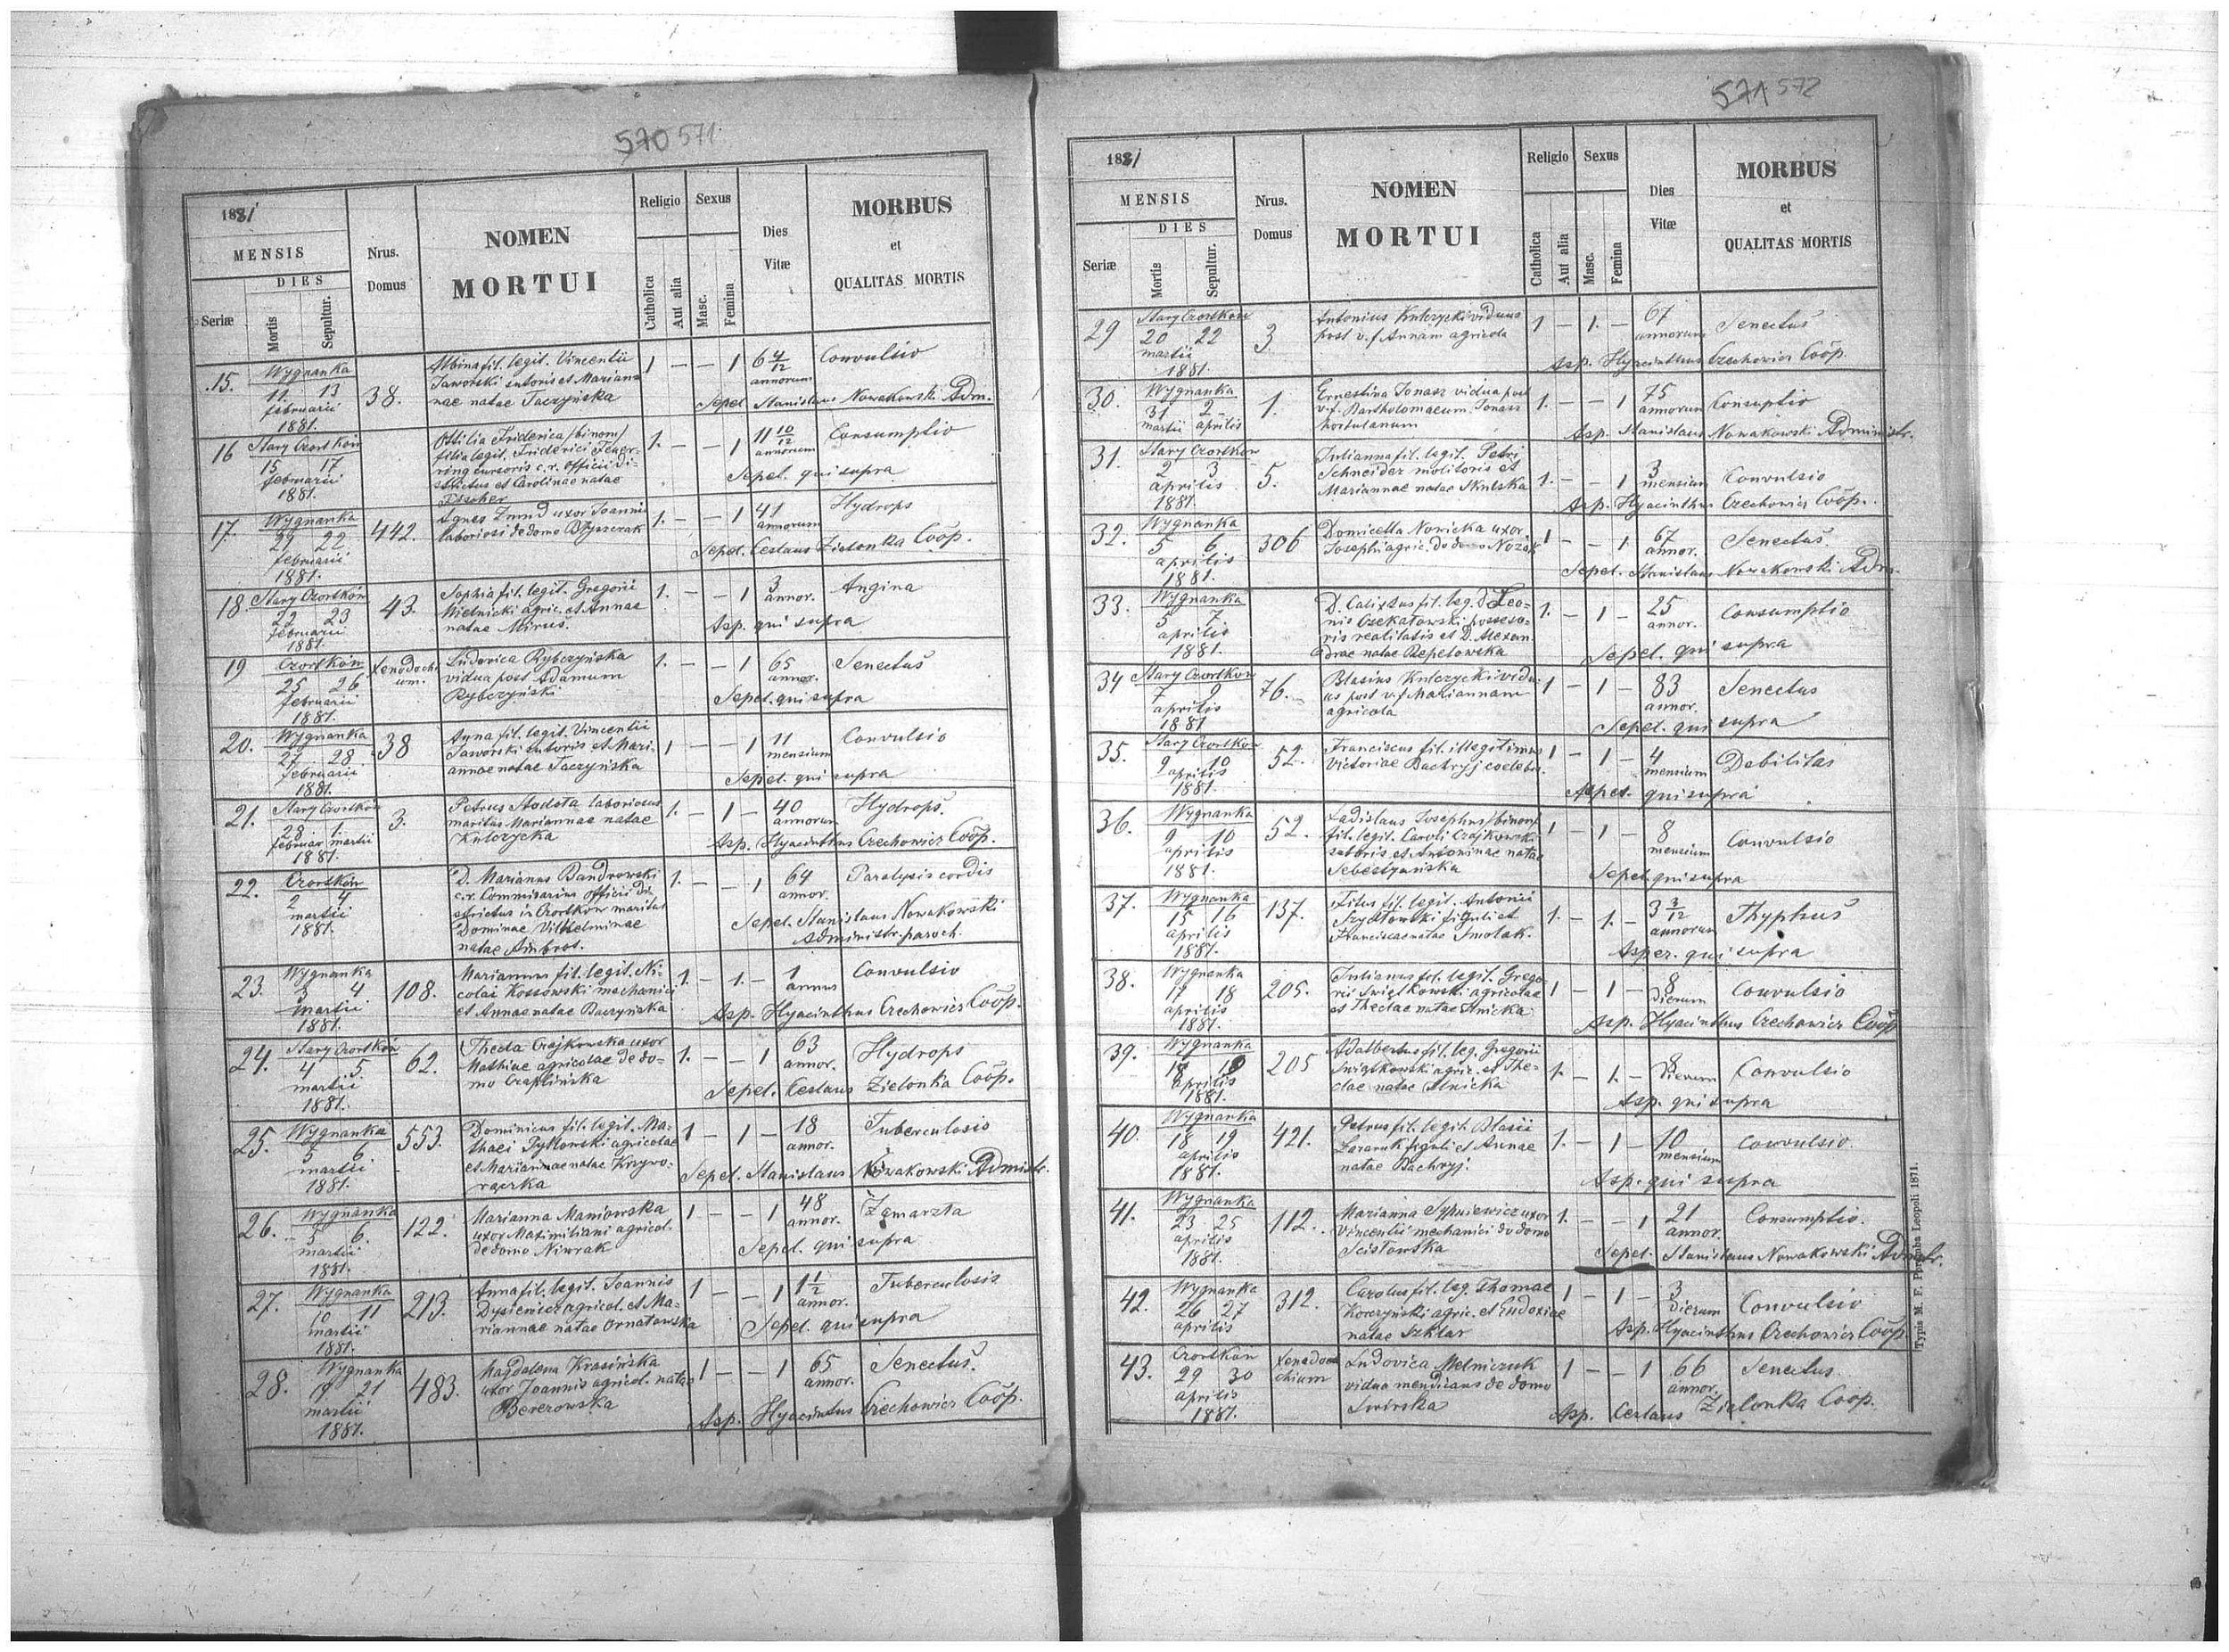 570 571
1881
MENSIS
DIES
Seriæ
Mortis
Sepultur.
Nrus.
Domus
NOMEN
MORTUI
Religio
Catholica
Aut alia
Sexus
Masc.
Femina
Dies
Vitæ
MORBUS
et
QUALITAS MORTIS
15. Wygnanka 38. Albina fil. legit. Vincentii 1 — — 1 6 4/12 Convulsio
11 13 Jaworski sutoris et Marian- annorum
februarii nae natae Taczyńska Sepel. Stanislaus Nowakowski Adm.
1881.
16 Stary Czortków Ottilia Friderica /binom/ 1. — — 1 11 10/12 Consumptio
15 17 filia legit. Friderici annorum
februarii cursoris c.r. officii di- Sepel. qui supra
1881. strictus et Carolinae natae
Fischer
17. Wygnanka 442. Agnes uxor Joannis 1. — — 1 41 Hydrops
22 laboriosi de domo annorum
februarii Sepel. Ceslaus Zielonka Coop.
1881.
18 Stary Czortków 43. Sophia fil. legit. Gregorii 1. — — 1 3 Angina
22 23 Mielnicki agric. et Annae annor.
februarii natae Miruś. Asp. qui supra
1881.
19 Czortków Xenodochi- Ludovica Rybczyńska 1. — — 1 65 Senectus
25 26 um. vidua post Adamum annor.
februarii Rybczyński Sepel. qui supra
1881.
20. Wygnanka 38 Anna fil. legit. Vincentii 1 — — 1 11 Convulsio
27 28 Jaworski sutoris et Mari- mensium
februarii annae natae Taczyńska Sepel. qui supra
1881.
21. Stary Czortków 3. Petrus Stodota laboriosus 1. — 1 — 40 Hydrops.
28 1. maritus Mariannae natae annorum
februar martii Kulczycka Asp. Hyacinthus Czechowicz Coop.
1881.
22. Czortków D. Marianus Bandrowski 1. — — 1 64 Paralysis cordis
2 4 c.r. Commissarius officii di- annor.
martii strictus in Czortków maritus Sepel. Stanislaus Nowakowski
1881. Dominae Vilhelminae Administr. paroch.
natae Ambros.
23. Wygnanka 108. Marianus fil. legit. Ni- 1. — 1. — 1 Convulsio
3 4 colai Kossowski mechanici annus
martii et Annae natae Baczyńska Asp. Hyacinthus Czechowicz Coop.
1881.
24. Stary Czortków 62. Thecla Czajkowska uxor 1. — — 1 63 Hydrops
4 5. Mathiae agricolae de do- annor.
martii mo Czaplińska Sepel. Ceslaus Zielonka Coop.
1881.
25. Wygnanka 553. Dominicus fil. legit. Ma- 1 — 1 — 18 Tuberculosio
5 6 thaei agricolae annor.
martii et Mariannae natae Krzywo- Sepel. Stanislaus Nowakowski Admistr.
1881. rączka
26. Wygnanka 122. Marianna Maniowska 1 — — 1 48 Zamarzła
5 6. uxor Maximiliani agricol. annor.
martii de domo Sepel. qui supra
1881.
27. Wygnanka 213. Anna fil. legit. Joannis 1 — — 1 1 1/2 Tuberculosis
10 11 agricol. et Ma- annor.
martii riannae natae Ornatowska Sepel. qui supra
1881.
28. Wygnanka 483. Magdalena Krasińska 1 — — 1 65 Senectus.
19 21 uxor Joannis agricol. natae annor.
martii Berezowska Asp. Hyacintus Czechowicz Coop.
1881.
571 572
1881
MENSIS
DIES
Seriæ
Mortis
Sepultur.
Nrus.
Domus
NOMEN
MORTUI
Religio
Catholica
Aut alia
Sexus
Masc.
Femina
Dies
Vitæ
MORBUS
et
QUALITAS MORTIS
29 Stary Czortków 3. Antonius Kulczycki viduus 1 — 1. — 67 Senectus
20 22 post v. f. Annam agricola annorum
martii Asp. Hyacinthus Czechowicz Coop.
1881.
30. Wygnanka 1. Ernestina Jonasz vidua post 1. — — 1 75 Consuptio
31 2 v. f. Bartholomaeum Jonasz annorum
martii aprilis hortulanum Asp. Stanislaus Nowakowski Administr.
31. Stary Czortków 5. Julianna fil. legit. Petri 1. — — 1 3 Convulsio
2 3 Schneider molitoris et mensium
aprilis Mariannae natae Skulska Asp. Hyacinthus Czechowicz Coop.
1881.
32. Wygnanka 306 Domicella Nowicka uxor 1 — — 1 67 Senectus
5 6 Josephi agric. de domo annor.
aprilis Sepel. Stanislaus Nowakowski Adm.
1881.
33. Wygnanka D. Calixtus fil. leg. D. Leo- 1. — 1 — 25 Consumptio
5 7 nis possesso- annor.
aprilis ris realitatis et D. Alexan- Sepel. qui supra
1881. drae natae Repetowska
34 Stary Czortków 76. Blasius Kulczycki vidu- 1 — 1 — 83 Senectus
7 9 us post v. f. Mariannam annor.
aprilis agricola Sepel. qui supra
1881
35. Stary Czortków 52. Franciscus fil. illegitimus 1 — 1 — 4 Debilitas
9 10 Victoriae Bachryj coelebs. mensium
aprilis qui supra
1881.
36. Wygnanka 52. Ladislaus Josephus /binom/ 1 — 1 — 8 Convulsio
9 10 fil. legit. Caroli Czajkowski mensium
aprilis sutoris et Antoninae natae Sepel. qui supra
1881. Sebestyańska
37. Wygnanka 137. Titus fil. legit. Antonii 1. — 1. — 3 3/12 Thyphus
15 16 Szydłowski figuli et annorum
aprilis Franciscae natae Smolak. Asper. qui supra
1881.
38. Wygnanka 205. Julianus fil. legit. Grego- 1 — 1 — 8 Convulsio
17 18 rii Świątkowski agricolae dierum
aprilis et Theclae natae Ilnicka Asp. Hyacinthus Czechowicz Coop
1881.
39. Wygnanka 205 Adalbertus fil. leg. Gregorii 1. — 1. — 8 Convulsio
Świątkowski agric. et The- dierum
aprilis clae natae Ilnicka Asp. qui supra
1881.
40. Wygnanka 421. Petrus fil. legit. Blasii 1. — 1 — 10 Convulsio.
18 19 Lazaruk figuli et Annae mensium
aprilis natae Bachryj. Asp. qui supra
1881.
41. Wygnanka 112. Marianna uxor 1. — — 1 21 Consumptio.
23 25 Vincentii mechanici de domo annor.
aprilis Scisłowska Sepel. Stanislaus Nowakowski Admstr.
1881.
42. Wygnanka 312. Carolus fil. leg. Thomae 1 — 1 — 3 Convulsio
26 27 Korczyński agric. et Eudoxiae dierum
aprilis natae Szklar Asp. Hyacinthus Czechowicz Coop.
43. Czortków Xenodo- Ludovica Melniczuk 1 — — 1 66 Senectus.
29 30 chium vidua mendicans de domo annor.
aprilis Asp. Ceslaus Zielonka Coop.
1881.
Typis M. F. Poremba Leopoli 1871.